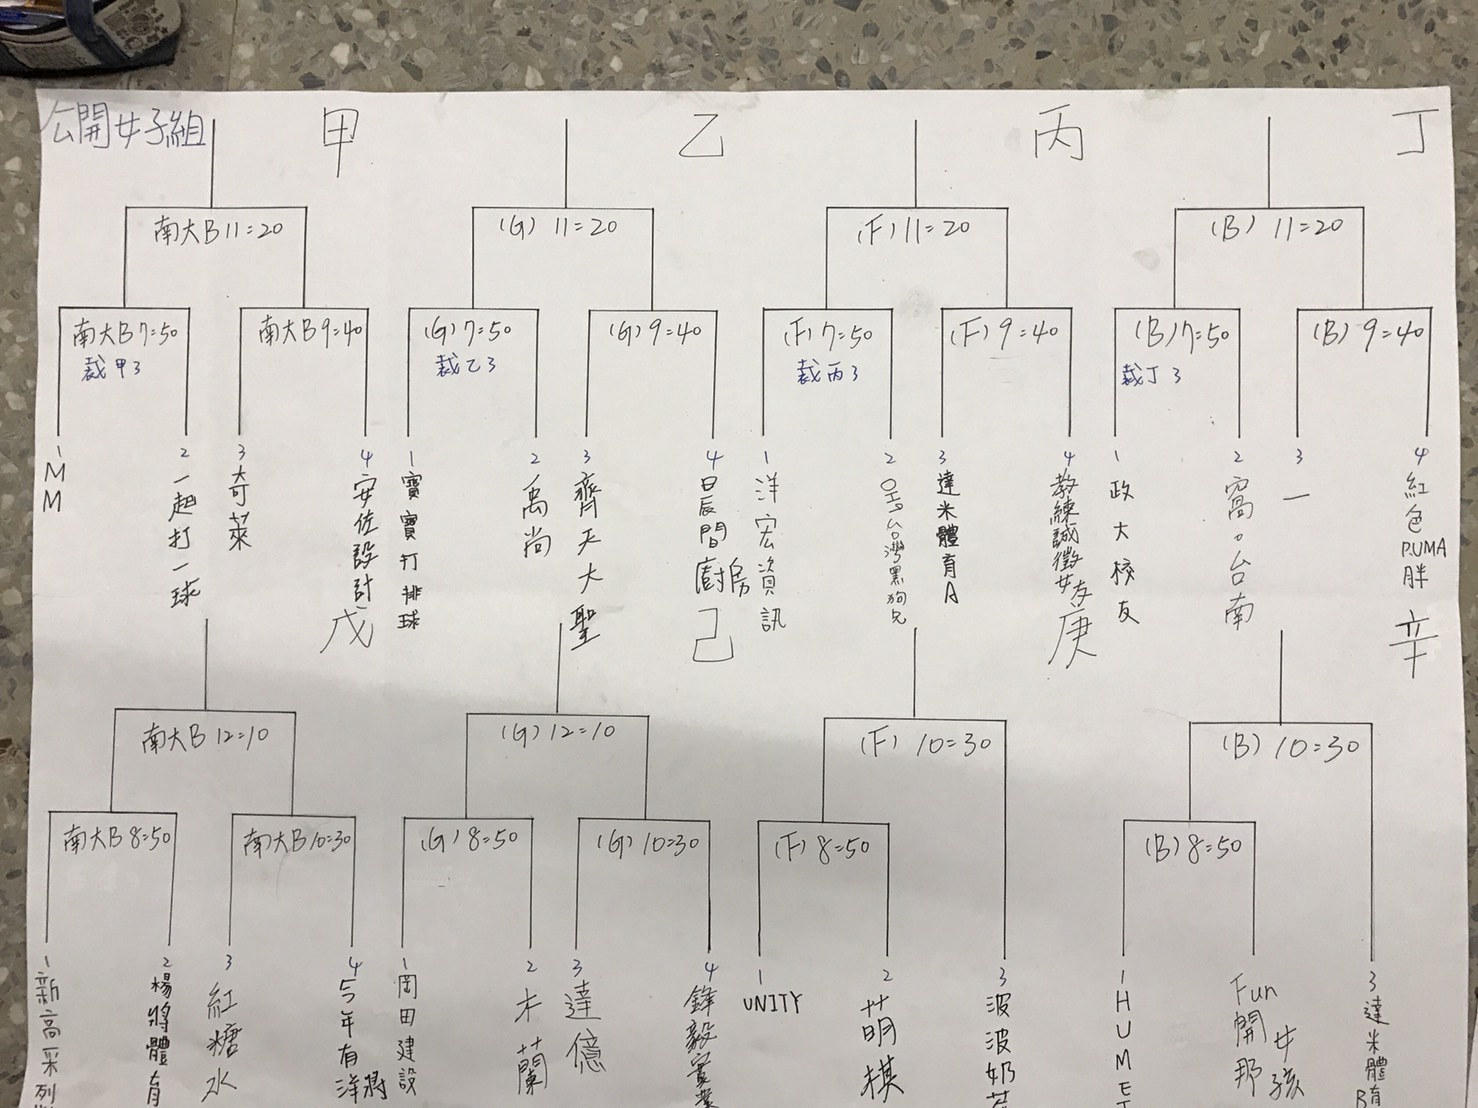 公開女子組
甲
乙
丙
丁
南大B 11=20
(G) 11=20
(F) 11=20
(B) 11=20
南大B 7=50
裁甲3
南大B 9=40
(G) 7=50
裁乙3
(G) 9=40
(F) 7=50
裁丙3
(F) 9=40
(B) 7=50
裁丁3
(B) 9=40
1 MM
2 一起打一球
3 奇萊
4 安佐設計
1 寶寶打排球
2 禹尚
3 齊天大聖
4 日辰間廚房
1 洋宏資訊
2 台灣黑狗兄
3 達米體育A
4 教練誠徵女友
1 政大校友
2 窩。台南
3 一
4 紅色PUMA胖
戊
己
庚
辛
南大B 12=10
(G) 12=10
(F) 10=30
(B) 10=30
南大B 8=50
南大B 10=30
(G) 8=50
(G) 10=30
(F) 8=50
(B) 8=50
1 新高采列
2 楊將體育
3 紅糖水
4 5年有洋將
1 岡田建設
2 木蘭
3 達億
4 鋒毅實業
1 UNITY
2 萌棋
3 波波奶茶
1 HUME
Fun開那女孩
3 達米體育B